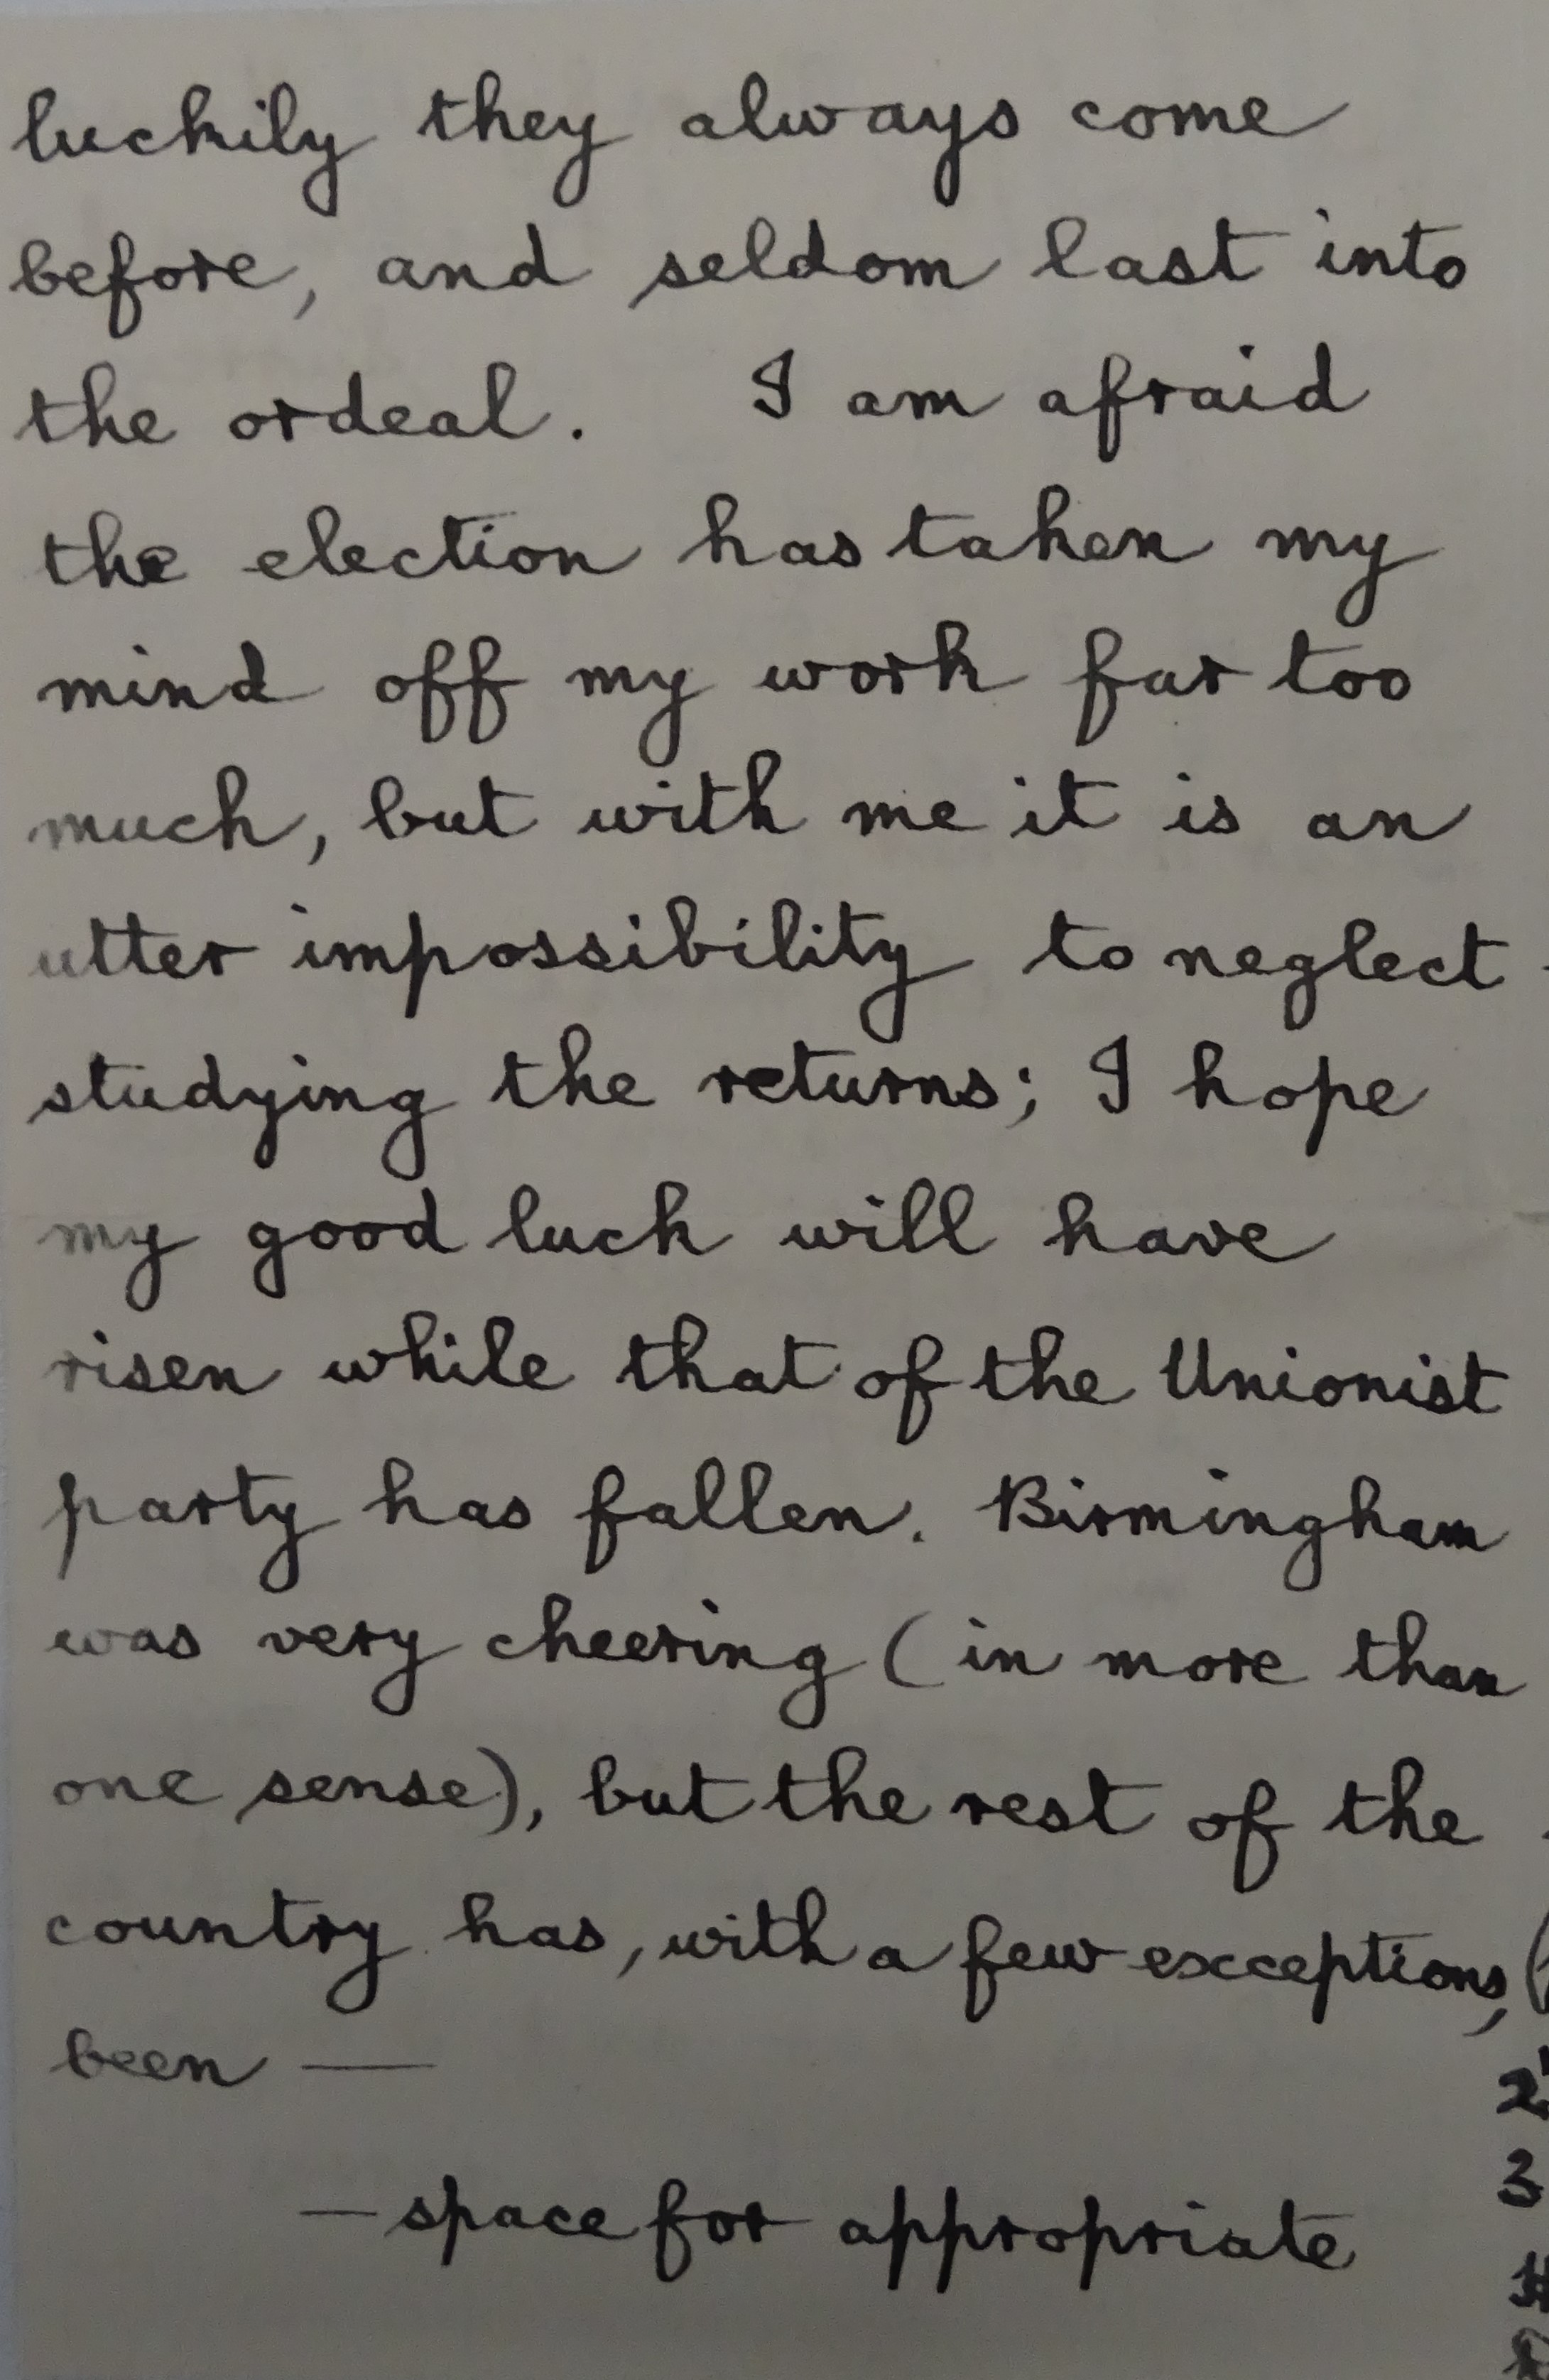 luckily they always come
before, and seldom last into
the ordeal. I am afraid
the election has taken my
mind off my work far too
much, but with me it is an
utter impossibility to neglect
studying the returns; I hope
my good luck will have
risen while that of the Unionist
party has fallen. Birmingham
was very cheering (in more than
one sense), but the rest of the
country has, with a few exceptions,
been —
— space for appropriate
2
3